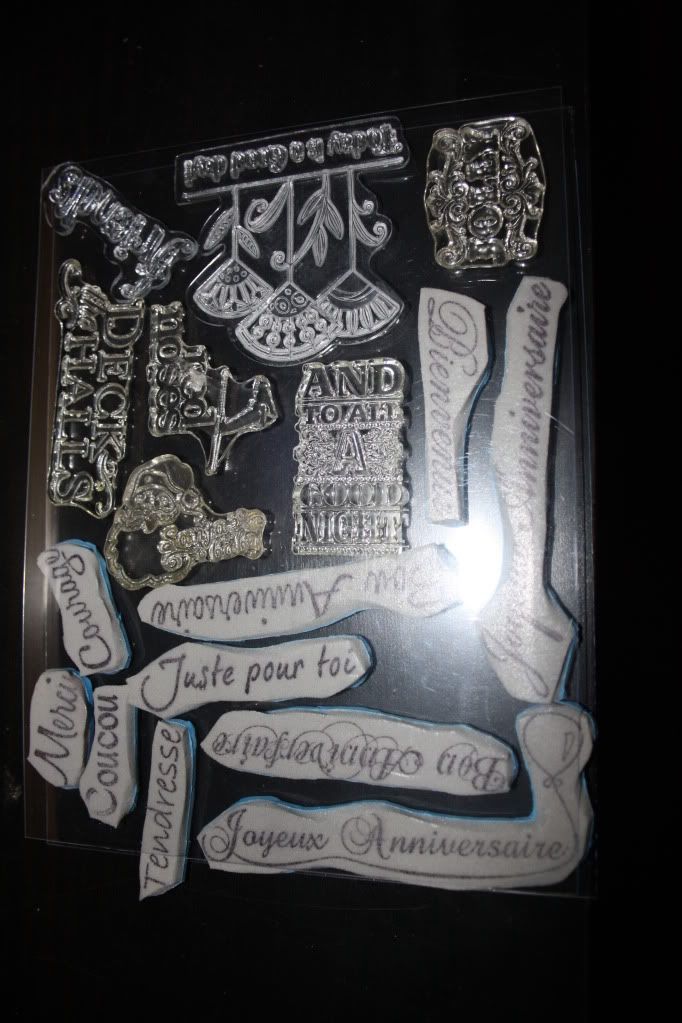 Today is a Good day!
DECK
THE
HALLS
red
noses
AND
TO ALL
A
GOOD
NIGHT
Bienvenue
Joyeux Anniversaire
Courage
Bon Anniversaire
Juste pour toi
Merci
Coucou
Tendresse
Bon Anniversaire
Joyeux Anniversaire